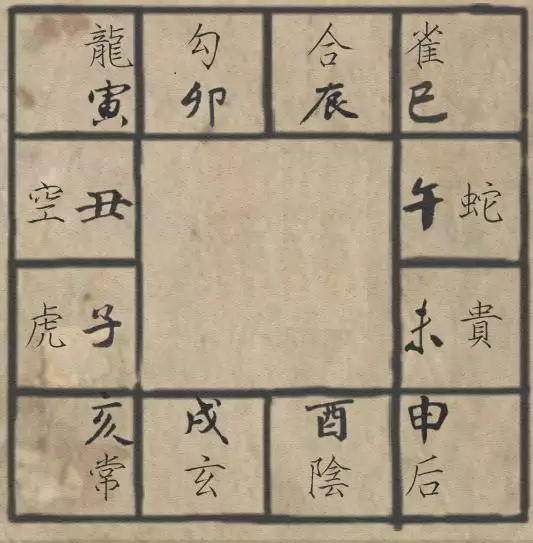 龍 勾 合 雀
寅 卯 辰 巳
空 丑 午 蛇
虎 子 未 貴
亥 戌 酉 申
常 玄 陰 后